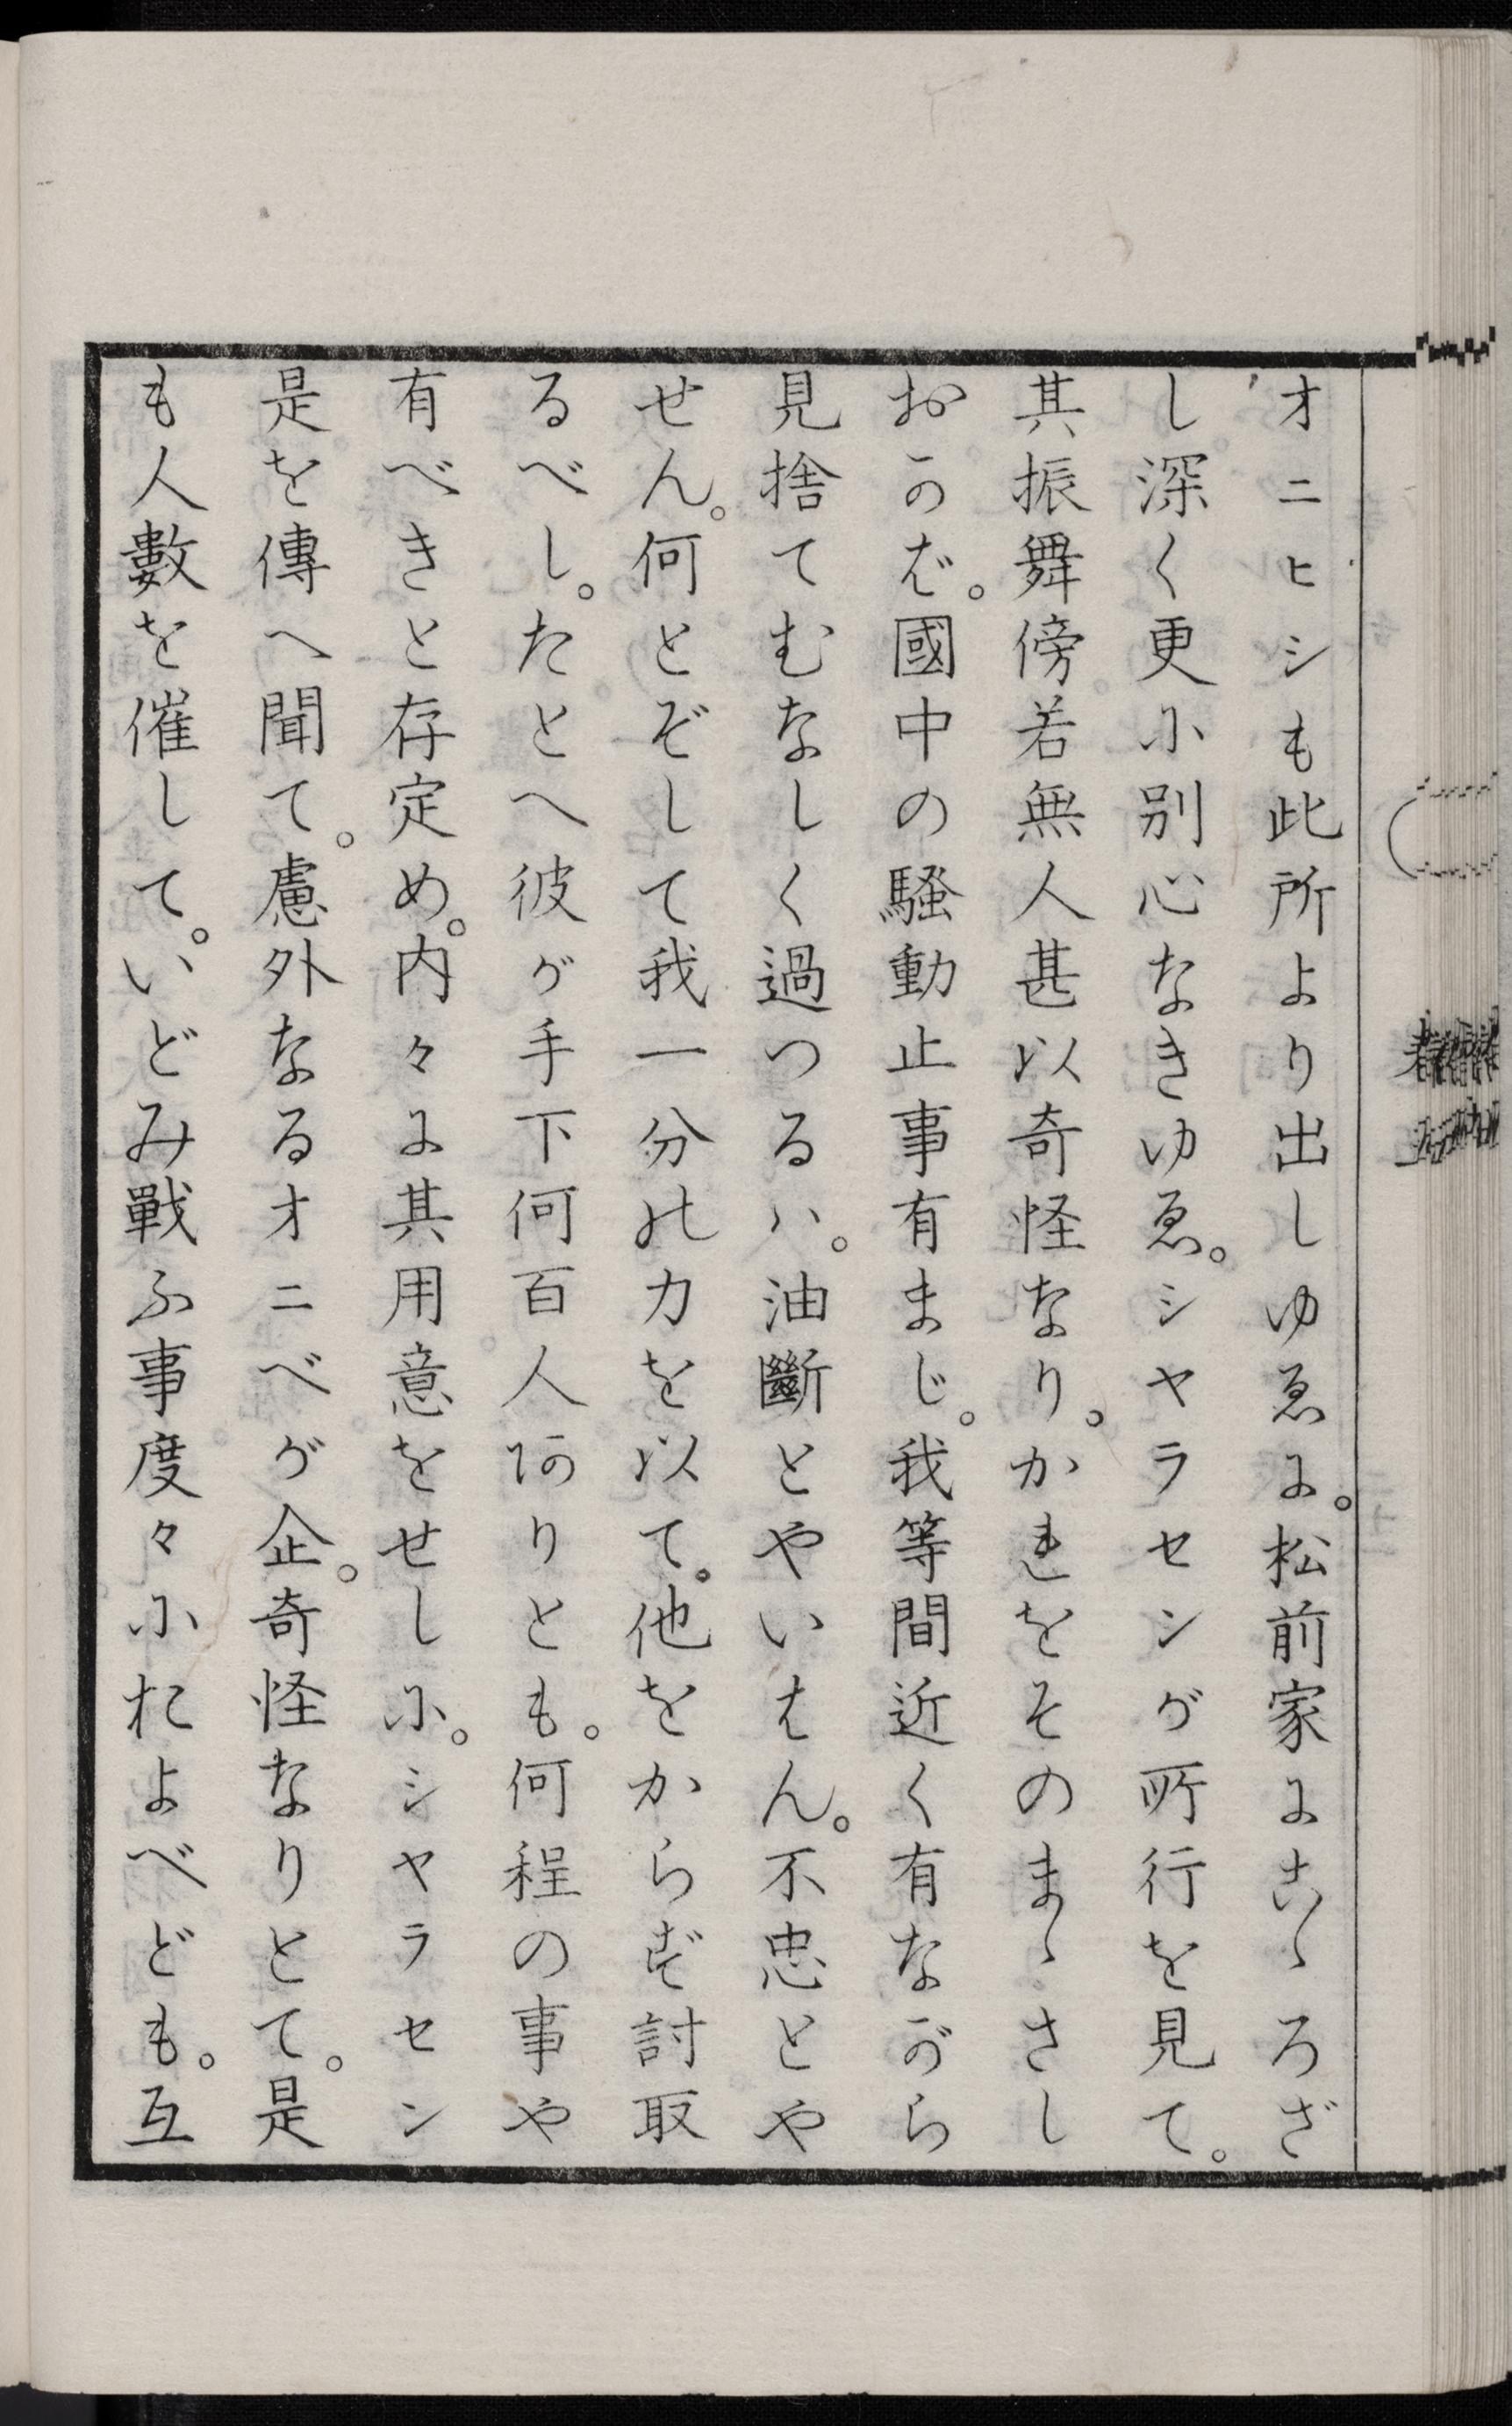 オニヒシも此所より出しゆゑに。松前家にこゝろざ
し深く更に別心なきゆゑ。シヤラセンが所行を見て。
其振舞傍若無人甚以奇怪なり。かれをそのまゝさし
おかば。國中の騒動止事有まじ。我等間近く有ながら
見捨てむなしく過つるハ。油斷とやいはん。不忠とや
せん。何とぞして我一分の力を以て。他をからず討取
るべし。たとへ彼が手下何百人ありとも。何程の事や
有べきと存定め。内々に其用意をせしに。シヤラセン
是を傳へ聞て。慮外なるオニベが企。奇怪なりとて。是
も人數を催して。いどみ戰ふ事度々におよべども。互